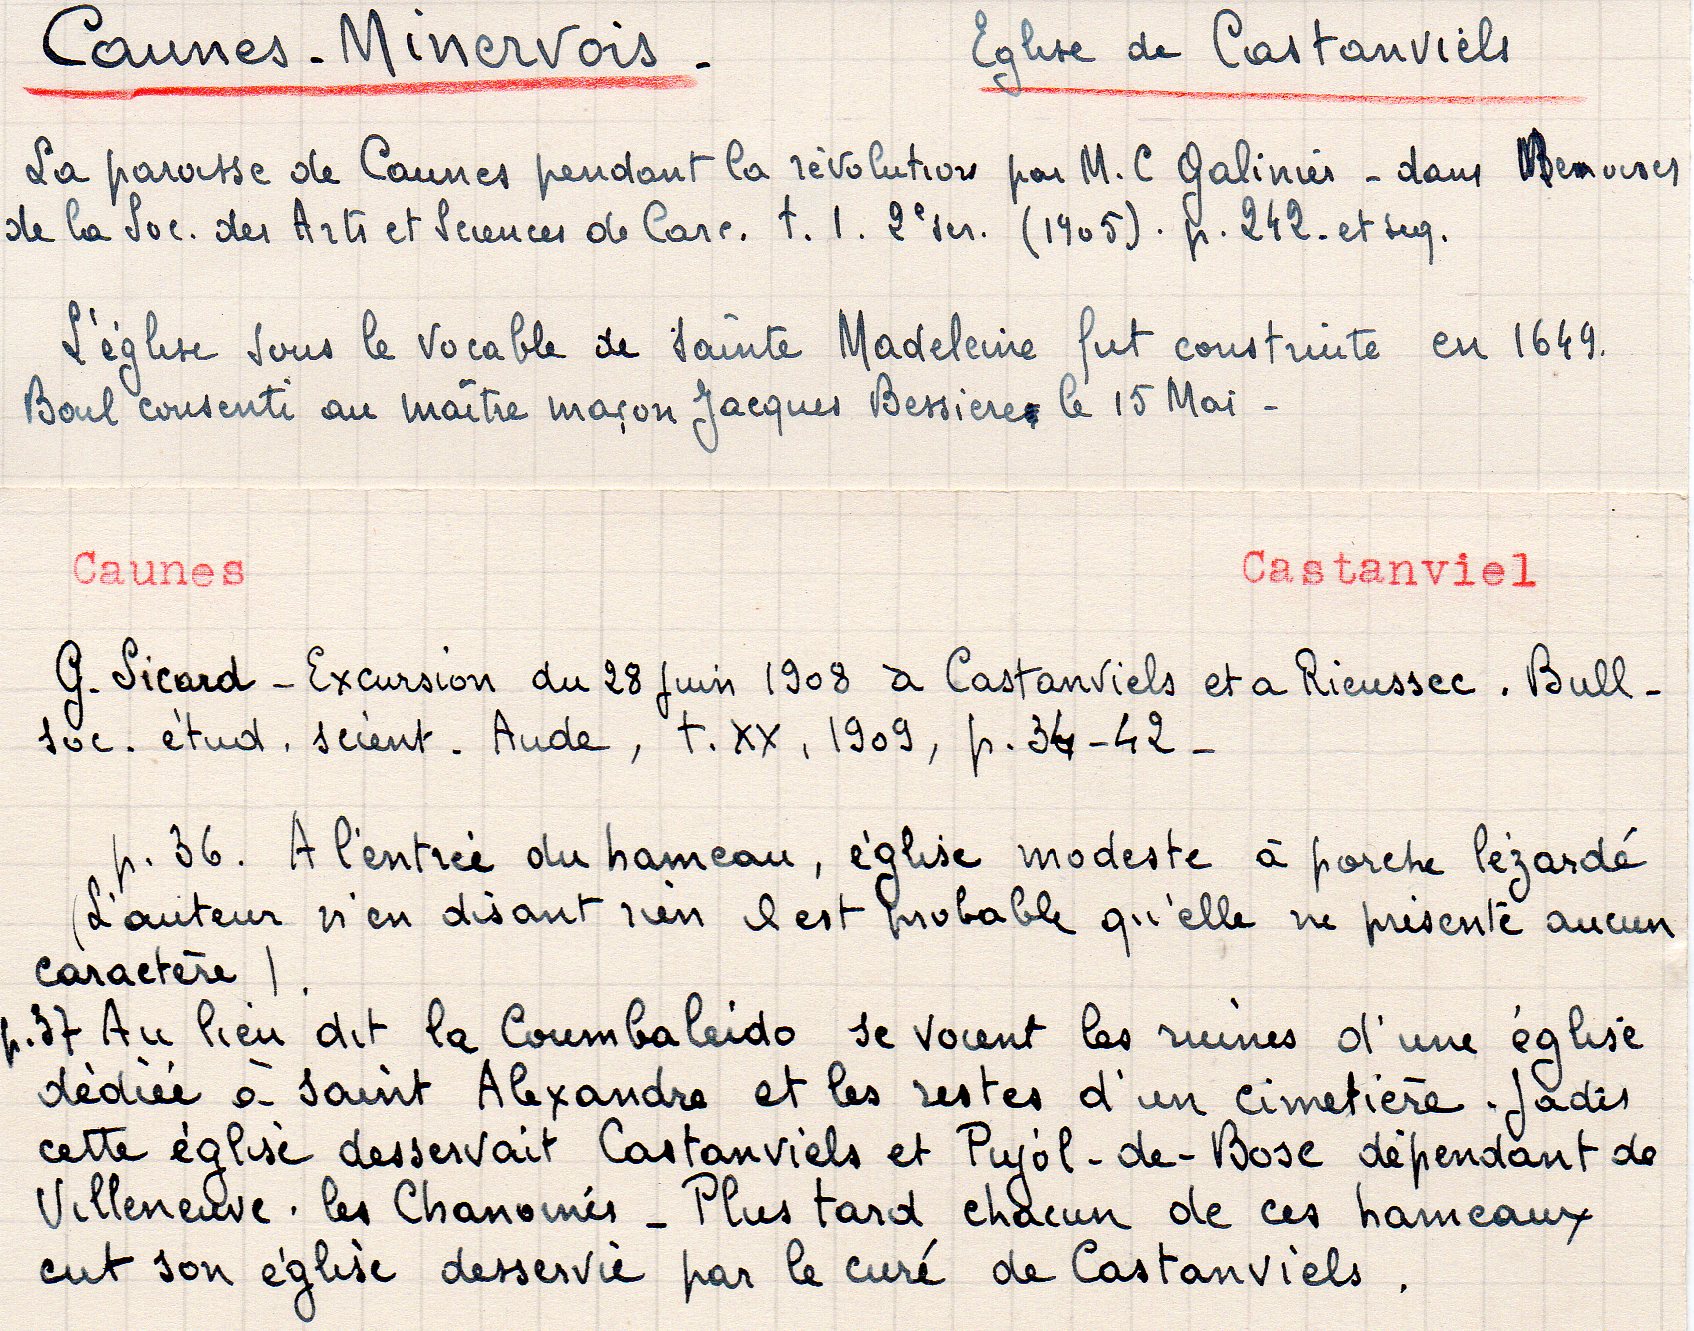 Caunes-Minervois - Eglise de Castanviels
La paroisse de Caunes pendant la révolution par M. C Galinier - dans Memoires
de la Soc. des Arts et Sciences de Carc. t. 1. 2e ser. (1905). p. 242. et seq.
L'église sous le vocable de Sainte Madeleine fut construite en 1649.
Bail consenti au maître maçon Jacques Bessiere le 15 Mai -
Caunes Castanviel
G. Sicard - Excursion du 28 juin 1908 à Castanviels et a Rieussec. Bull-
soc. étud. scient. Aude, t. XX, 1909, p. 34-42-
p. 36. A l'entrée du hameau, église modeste à porche lézardé
(L'auteur n'en disant rien il est probable qu'elle ne présente aucun
caractère).
p.37 Au lieu dit la Coumbaleido se voient les ruines d'une église
dédiée à Saint Alexandre et les restes d'un cimetière. Jadis
cette église desservait Castanviels et Pujol-de-Bosc dépendant de
Villeneuve-les Chanoines - Plus tard chacun de ces hameaux
eut son église desservie par le curé de Castanviels.